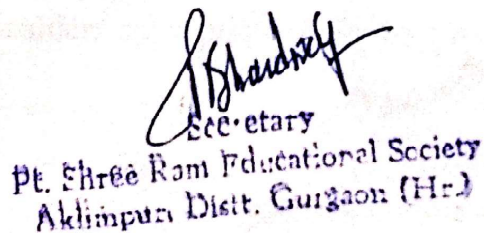 SBhardwaj
Secretary
Pt. Shree Ram Educational Society
Aklimpur, Distt. Gurgaon (Hr.)